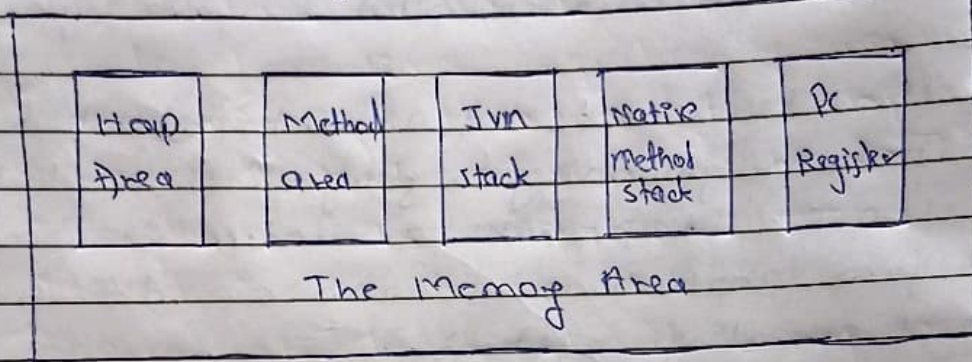 Heap
Area
Method
area
Jvm
stack
Native
method
stack
Pc
Register
The Memory Area